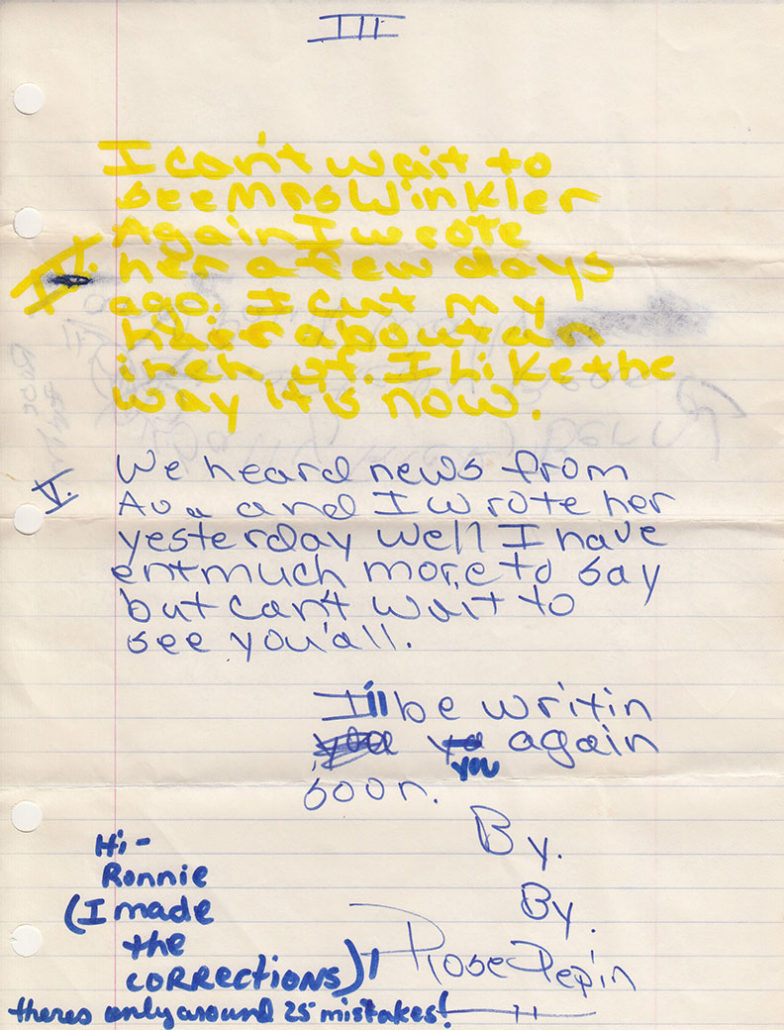 III
I can't wait to
see Mrs Winkler
Again I wrote
IV. her a few days
ago. I cut my
hair about an
inch I Like the
way it is now.
V. We heard news from
and I wrote her
yesterday well I have
ent much more to say
but can't wait to
see you'all.
I'll be writin
you again
soon.
By.
By.
Rose Pepin
Hi-
Ronnie
(I made
the
CORRECTIONS)
theres only around 25 mistakes!